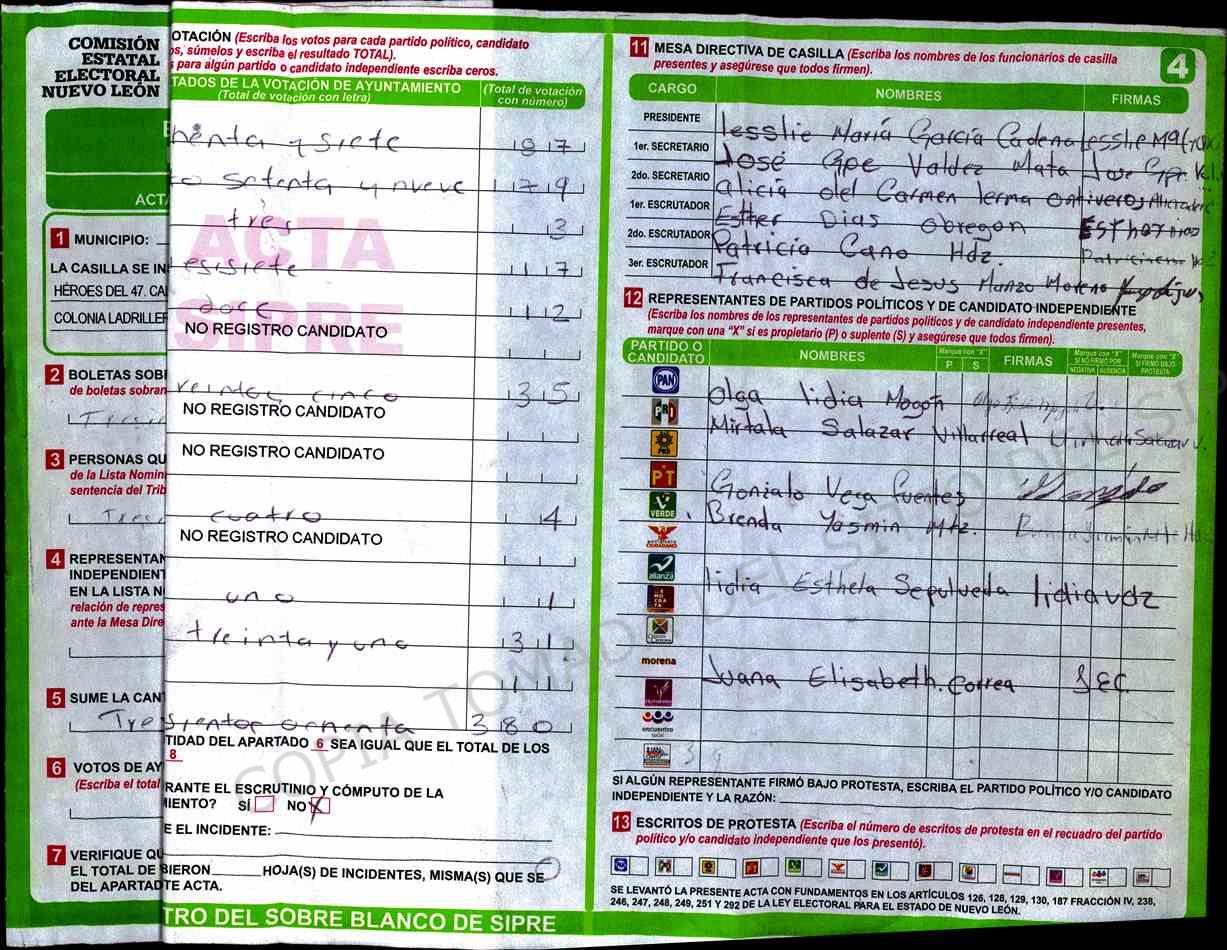 COMISIÓN
ESTATAL
ELECTORAL
NUEVO LEÓN
ACTA
1 MUNICIPIO:
LA CASILLA SE IN
HÉROES DEL 47. CA
COLONIA LADRILLER
2 BOLETAS SOB
de boletas sobran
3 PERSONAS QU
de la Lista Nomin
sentencia del Trib
4 REPRESENTAN
INDEPENDIENT
EN LA LISTA N
relación de repres
ante la Mesa Dire
5 SUME LA CAN
Tre
6 VOTOS DE AY
(Escriba el total
7 VERIFIQUE QU
EL TOTAL DE
DEL APARTAD
OTACIÓN (Escriba los votos para cada partido político, candidato
os, súmelos y escriba el resultado TOTAL).
s para algún partido o candidato independiente escriba ceros.
TADOS DE LA VOTACIÓN DE AYUNTAMIENTO
(Total de votación con letra)
(Total de votación
con número)
henta y siete 87
to setenta y nueve 179
tres 3
ACTA
SIPRE
esisiete 17
doce 12
NO REGISTRO CANDIDATO
cinco 35
NO REGISTRO CANDIDATO
NO REGISTRO CANDIDATO
cuatro 4
NO REGISTRO CANDIDATO
uno 1
treinta y uno 31
11
380
TIDAD DEL APARTADO 6 SEA IGUAL QUE EL TOTAL DE LOS
8
RANTE EL ESCRUTINIO Y CÓMPUTO DE LA
IENTO? SÍ NO X
E EL INCIDENTE:
BIERON HOJA(S) DE INCIDENTES, MISMA(S) QUE SE
TE ACTA.
TRO DEL SOBRE BLANCO DE SIPRE
11 MESA DIRECTIVA DE CASILLA (Escriba los nombres de los funcionarios de casilla
presentes y asegúrese que todos firmen).
4
CARGO NOMBRES FIRMAS
PRESIDENTE lesslie María García Cadena
1er. SECRETARIO José Gpe Valdez Mata
2do. SECRETARIO alicia del Carmen lerma ontiveros
1er. ESCRUTADOR Esther Dias obregon
2do. ESCRUTADOR Patricia Cano Hdz.
3er. ESCRUTADOR Francisca de Jesus Manzo Moreno
12 REPRESENTANTES DE PARTIDOS POLÍTICOS Y DE CANDIDATO INDEPENDIENTE
(Escriba los nombres de los representantes de partidos políticos y de candidato independiente presentes,
marque con una "X" si es propietario (P) o suplente (S) y asegúrese que todos firmen).
PARTIDO O
CANDIDATO
NOMBRES
Marque con "X"
P S
FIRMAS
Marque con "X"
SI NO FIRMÓ POR
NEGATIVA AUSENCIA
Marque con "X"
SI FIRMÓ BAJO
PROTESTA
PAN Olga lidia Mogón
PRI Mirtala Salazar Villarreal
PRD
PT Gonzalo Vega fuentes
VERDE Brenda Yasmin Mtz.
alianza
lidia Esthela Sepulveda lidia vdz
morena
Juana Elisabeth. Correa J.E.C.
encuentro
social
SI ALGÚN REPRESENTANTE FIRMÓ BAJO PROTESTA, ESCRIBA EL PARTIDO POLÍTICO Y/O CANDIDATO
INDEPENDIENTE Y LA RAZÓN:
13 ESCRITOS DE PROTESTA (Escriba el número de escritos de protesta en el recuadro del partido
político y/o candidato independiente que los presentó).
SE LEVANTÓ LA PRESENTE ACTA CON FUNDAMENTOS EN LOS ARTÍCULOS 126, 128, 129, 130, 187 FRACCIÓN IV, 238,
246, 247, 248, 249, 251 Y 292 DE LA LEY ELECTORAL PARA EL ESTADO DE NUEVO LEÓN.
COPIA TOMADA DEL SITIO DEL SI